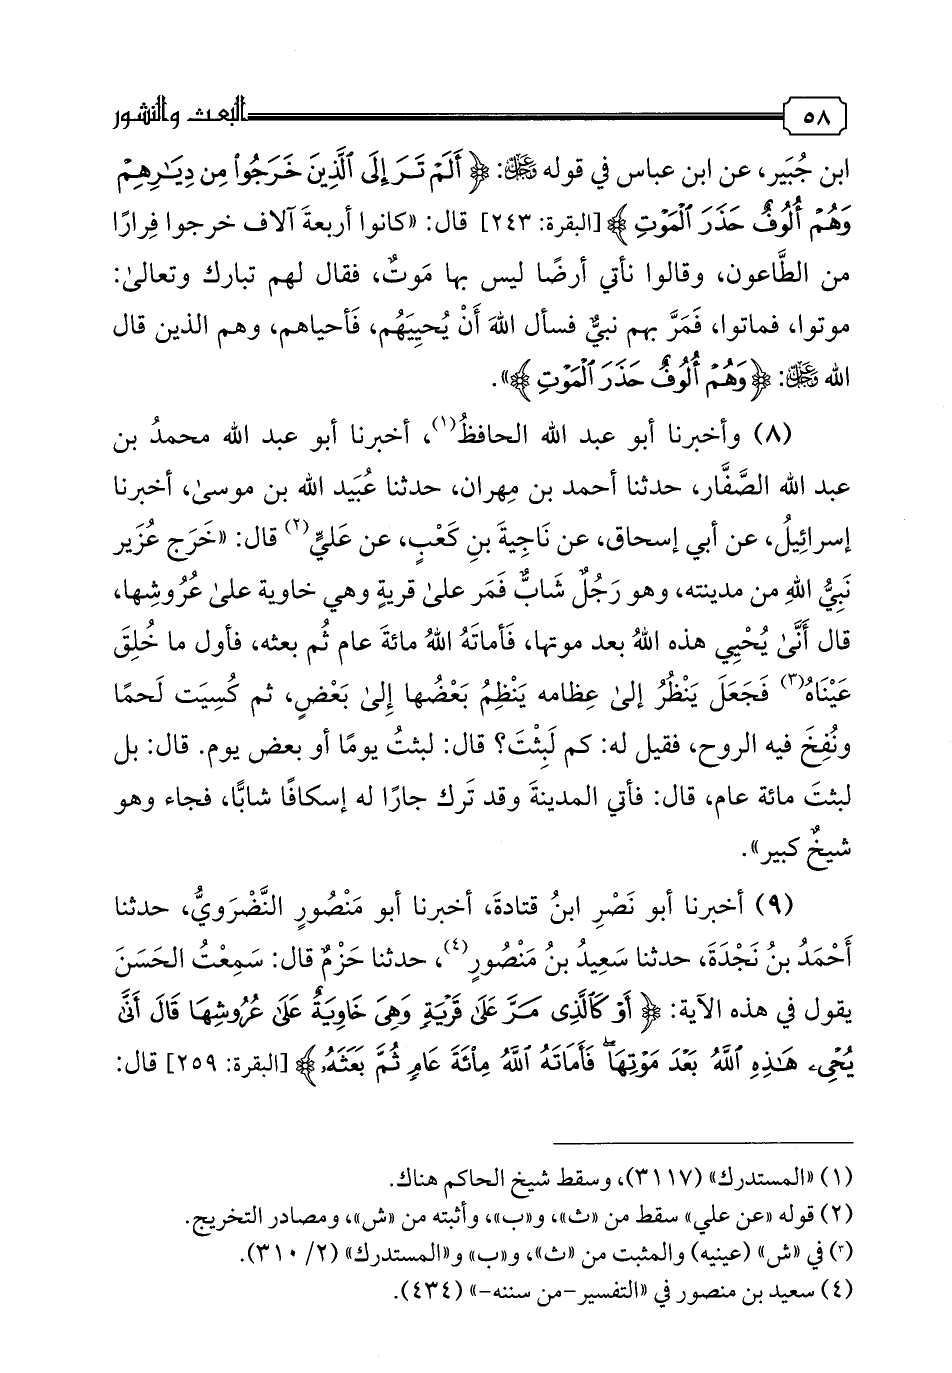 ٥٨ البعث والنشور
ابن جُبَير، عن ابن عباس في قوله ﷿: ﴿أَلَمْ تَرَ إِلَى ٱلَّذِينَ خَرَجُواْ مِن دِيَـٰرِهِمْ
وَهُمْ أُلُوفٌ حَذَرَ ٱلْمَوْتِ﴾ [البقرة: ٢٤٣] قال: «كانوا أربعةَ آلاف خرجوا فِرارًا
من الطَّاعون، وقالوا نأتي أرضًا ليس بها مَوتٌ، فقال لهم تبارك وتعالىٰ:
موتوا، فماتوا، فَمَرَّ بهم نبيٌّ فسأل اللهَ أَنْ يُحيِيَهُم، فَأحياهم، وهم الذين قال
الله ﷿: ﴿وَهُمْ أُلُوفٌ حَذَرَ ٱلْمَوْتِ﴾».
(٨) وأخبرنا أبو عبد الله الحافظُ(١)، أخبرنا أبو عبد الله محمدُ بن
عبد الله الصَّفَّار، حدثنا أحمد بن مِهران، حدثنا عُبَيد الله بن موسىٰ، أخبرنا
إسرائِيلُ، عن أبي إسحاق، عن نَاجِيةَ بنِ كَعْبٍ، عن عَليٍّ(٢) قال: «خَرَج عُزَير
نَبِيُّ اللهِ من مدينته، وهو رَجُلٌ شَابٌّ فَمَر علىٰ قريةٍ وهي خاوية علىٰ عُرُوشِها،
قال أَنَّىٰ يُحْيِي هذه اللهُ بعد موتها، فَأماتَهُ اللهُ مائةَ عام ثُم بعثه، فأول ما خُلِقَ
عَيْنَاهُ(٣) فَجَعَلَ يَنْظُرُ إلىٰ عِظامه يَنْظِمُ بَعْضُها إِلىٰ بَعْضٍ، ثم كُسِيَت لَحمًا
ونُفِخَ فيه الروح، فقيل له: كم لَبِثْتَ؟ قال: لبثتُ يومًا أو بعض يوم. قال: بل
لبثتَ مائة عام، قال: فأتي المدينةَ وقد تَرك جارًا له إسكافًا شابًّا، فجاء وهو
شيخٌ كبير».
(٩) أخبرنا أبو نَصْرِ ابنُ قتادةَ، أخبرنا أبو مَنْصُورٍ النَّضْرَوِيُّ، حدثنا
أَحْمَدُ بنُ نَجْدَةَ، حدثنا سَعِيدُ بنُ مَنْصُورٍ(٤)، حدثنا حَزْمٌ قال: سَمِعْتُ الحَسَنَ
يقول في هذه الآية: ﴿أَوْ كَٱلَّذِى مَرَّ عَلَىٰ قَرْيَةٍ وَهِىَ خَاوِيَةٌ عَلَىٰ عُرُوشِهَا قَالَ أَنَّىٰ
يُحْىِۦ هَـٰذِهِ ٱللَّهُ بَعْدَ مَوْتِهَا ۖ فَأَمَاتَهُ ٱللَّهُ مِا۟ئَةَ عَامٍ ثُمَّ بَعَثَهُۥ﴾ [البقرة: ٢٥٩] قال:
(١) «المستدرك» (٣١١٧)، وسقط شيخ الحاكم هناك.
(٢) قوله «عن علي» سقط من «ث»، و«ب»، وأثبته من «ش»، ومصادر التخريج.
(٣) في «ش» (عينيه) والمثبت من «ث»، و«ب» و«المستدرك» (٢/ ٣١٠).
(٤) سعيد بن منصور في «التفسير-من سننه-» (٤٣٤).